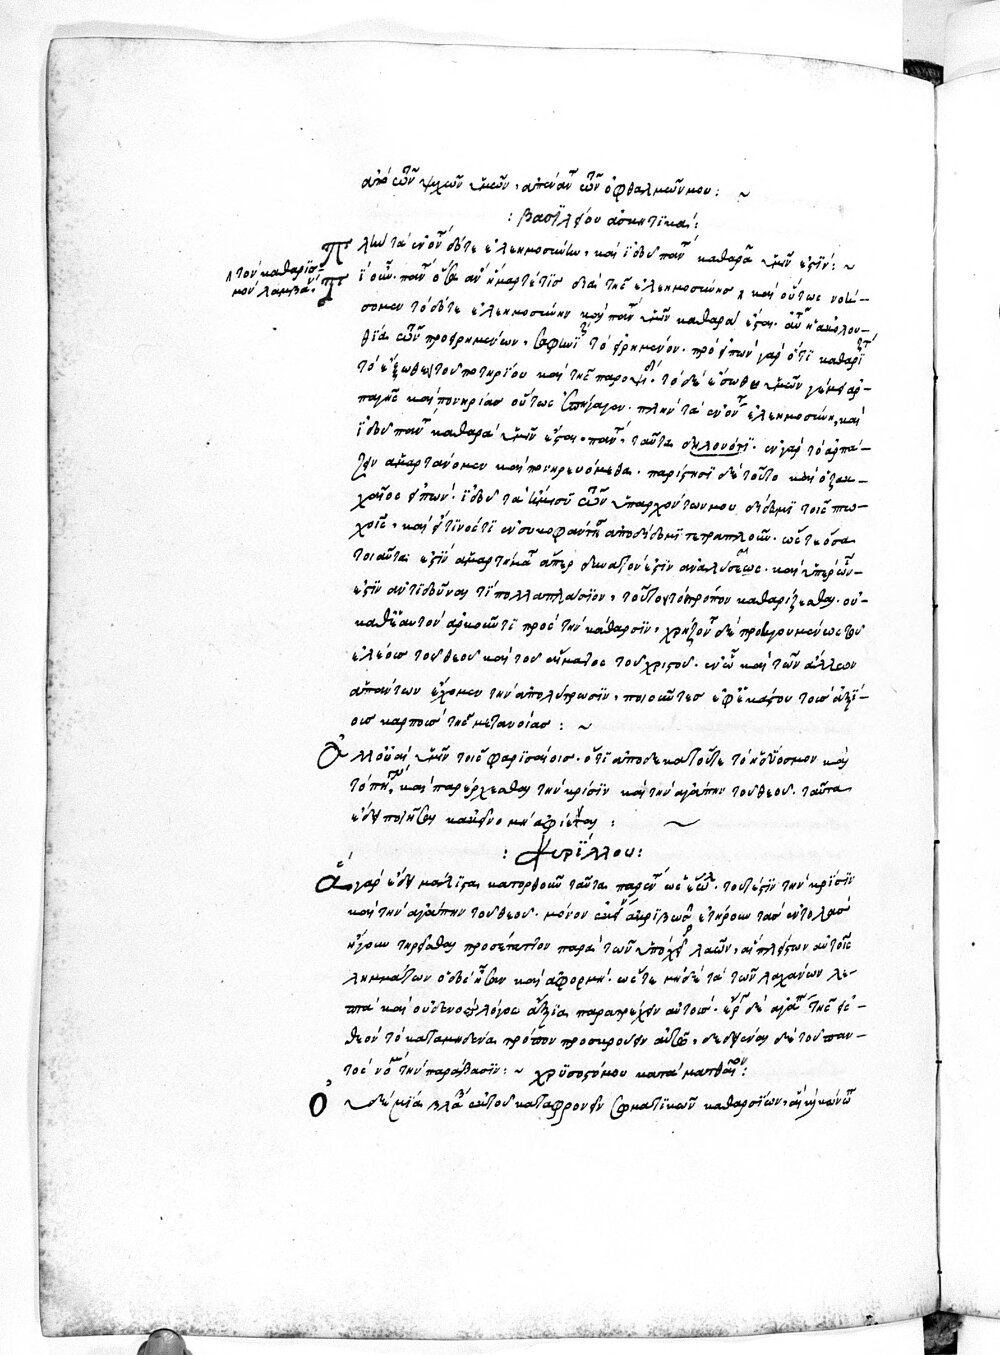 ἀπὸ τῶν ψυχῶν ὑμῶν, ἀπέναντι τῶν ὀφθαλμῶν μου: ~
: βασιλείου ἀσκητικαί:
Πλὴν τὰ ἐνόντα δότε ἐλεημοσύνην, καὶ ἰδοὺ πάντα καθαρὰ ὑμῖν ἐστίν: ~
τὸν καθαρισμὸν λαμβάν
τί οὖν. πάντα ὅσα ἂν ἡμάρτέ τις διὰ τῆς ἐλεημοσύνης καὶ οὕτως νοή–
σομεν τὸ δότε ἐλεημοσύνην καὶ πάντα ὑμῖν καθαρὰ ἔσται. αὐτὴ ἡ ἀκολου–
θία τῶν προειρημένων, σαφηνίζει τὸ εἰρημένον. προειπὼν γὰρ ὅτι καθαρίζετε
τὸ ἔξωθεν τοῦ ποτηρίου καὶ τῆς παροψίδος. τὸ δὲ ἔσωθεν ὑμῶν γέμει ἁρ–
παγῆς καὶ πονηρίας οὕτως ἐπήγαγεν. πλὴν τὰ ἐνόντα ἐλεημοσύνην, καὶ
ἰδοὺ πάντα καθαρὰ ὑμῖν ἔσται. πάντα, ταῦτα δηλονότι. ἐν γὰρ τὸ ἁρπά–
ζειν ἁμαρτάνομεν καὶ πονηρευόμεθα. παρίστησι δὲ τοῦτο καὶ ὁ ζακ–
χαῖος εἰπών. ἰδοὺ τὰ ἡμίση τῶν ὑπαρχόντων μου δίδωμι τοῖς πτω–
χοῖς, καὶ εἴ τινός τι ἐσυκοφάντησα ἀποδίδωμι τετραπλοῦν. ὥστε ὅσα
τοιαῦτα ἐστὶν ἁμαρτήματα ἅπερ δυνατόν ἐστιν ἀναλύσεως. καὶ ὑπὲρ ὧν–
ἐστὶν ἀντιδοῦναι τι πολλαπλάσιον, τοῦτον τὸν τρόπον καθαρίζεσθαι. οὐ–
καθ' ἑαυτὸν ἀρκοῦντι πρὸς τὴν κάθαρσιν, χρῄζοντα δὲ προηγουμένως τοῦ
ἐλέους τοῦ θεοῦ καὶ τοῦ αἵματος τοῦ χριστοῦ. ἐν ᾧ καὶ τῶν ἄλλων
ἁπάντων ἔχομεν τὴν ἀπολύτρωσιν, ποιοῦντες ἐφ' ἑκάστου τοὺς ἀξί–
ους καρποὺς τῆς μετανοίας: ~
Ἀλλ' οὐαὶ ὑμῖν τοῖς φαρισαίοις. ὅτι ἀποδεκατοῦτε τὸ ἡδύοσμον καὶ
τὸ πήγανον, καὶ παρέρχεσθαι τὴν κρίσιν καὶ τὴν ἀγάπην τοῦ θεοῦ. ταῦτα
ἔδει ποιῆσαι κἀκεῖνα μὴ ἀφιέναι: ~
: Κυρίλλου:
Ἃ γὰρ ἔδει μάλιστα κατορθοῦν ταῦτα παρέντες ὡς ἕωλα. τουτέστιν τὴν κρίσιν
καὶ τὴν ἀγάπην τοῦ θεοῦ. μόνον ἀκριβῶς ἐτήρουν τὰς ἐντολὰς
ἤγουν τηρεῖσθαι προσέταττον παρὰ τῶν ὑπὸ χεῖρα λαῶν, αἵπερ ἦσαν αὐτοῖς
λημμάτων ὁδοὶ ἦσαν καὶ ἀφορμή. ὥστε μηδὲ τὰ τῶν λαχάνων λε–
πτὰ καὶ οὐδενὸς λόγου ἄξια παρατρέχειν αὐτούς. ἔργον δὲ ἀγάπης τῆς εἰς
θεὸν τὸ κατὰ μηδένα τρόπον προσκρούειν αὐτῷ, δεδιέναι δὲ τοῦ παν–
τὸς νόμου τὴν παράβασιν: ~ χρυσοστόμου κατὰ ματθαῖον:
Οὐδεμία βλάβη ἐκ τοῦ καταφρονεῖν σωματικῶν καθαρσίων,